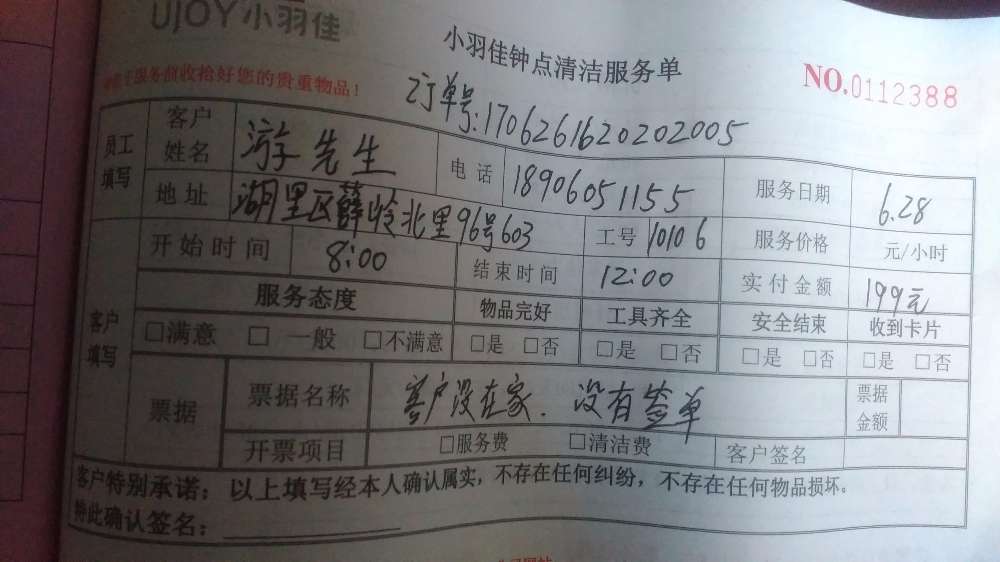 UJOY小羽佳
小羽佳钟点清洁服务单
NO.0112388
服务前收拾好您的贵重物品！
订单号:1706261620202005
员工填写 客户姓名 游先生 电话 18906051155 服务日期 6.28
地址 湖里区薛岭北里96号603 工号 10106 服务价格 元/小时
开始时间 8:00 结束时间 12:00 实付金额 199元
客户填写 服务态度 物品完好 工具齐全 安全结束 收到卡片
□满意 □一般 □不满意 □是 □否 □是 □否 □是 □否 □是 □否
票据 票据名称 客户没在家.没有签单 票据金额
开票项目 □服务费 □清洁费 客户签名
客户特别承诺：以上填写经本人确认属实，不存在任何纠纷，不存在任何物品损坏。
特此确认签名：